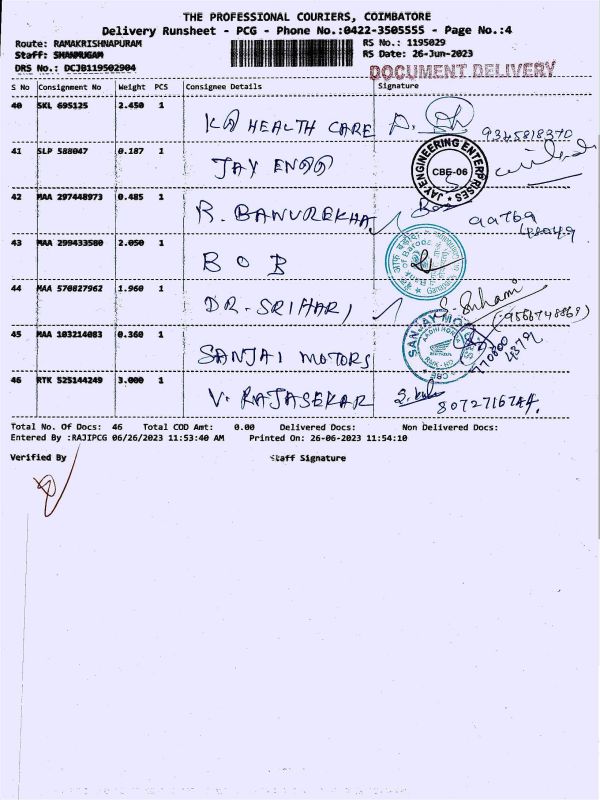 THE PROFESSIONAL COURIERS, COIMBATORE
Delivery Runsheet - PCG - Phone No.:0422-3505555 - Page No.:4
Route: RAMAKRISHNAPURAM RS No.: 1195029
Staff: SHANMUGAM RS Date: 26-Jun-2023
DRS No.: DCJB119502904 DOCUMENT DELIVERY
S No Consignment No Weight PCS Consignee Details Signature
40 SKL 695125 2.450 1 KA HEALTH CARE 9345818370
41 SLP 588047 0.187 1 JAY ENGG JAY ENGINEERING ENTERPRISES CBE-06
42 MAA 297448973 0.485 1 R. BANUREKHA
43 MAA 299433580 2.050 1 BOB
44 MAA 570827962 1.960 1 DR. SRIHARI
45 MAA 103214083 0.360 1 SANJAI MOTORS
46 RTK 525144249 3.000 1 V. RAJASEKAR
Total No. Of Docs: 46 Total COD Amt: 0.00 Delivered Docs: Non Delivered Docs:
Entered By :RAJIPCG 06/26/2023 11:53:40 AM Printed On: 26-06-2023 11:54:10
Verified By Staff Signature